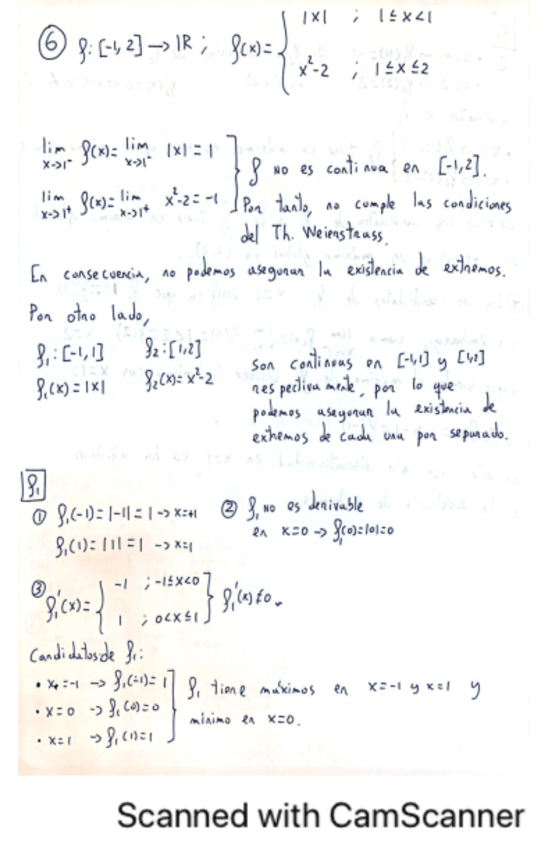 ⑥ f: [-1,2] → IR ; f(x) = { |x| ; 1 ≤ x < 1
x²-2 ; 1 ≤ x ≤ 2
lim x→1⁻ f(x) = lim x→1⁻ |x| = 1
f no es continua en [-1,2].
lim x→1⁺ f(x) = lim x→1⁺ x²-2 = -1
Por tanto, no cumple las condiciones
del Th. Weienstrass.
En consecuencia, no podemos asegurar la existencia de extremos.
Por otro lado,
f₁: [-1,1] f₂: [1,2]
f₁(x) = |x| f₂(x) = x²-2
son continuas en [-1,1] y [1,2]
respectivamente, por lo que
podemos asegurar la existencia de
extremos de cada una por separado.
f₁
① f₁(-1) = |-1| = 1 → x=+1
f₁(1) = |1| = 1 → x=1
② f₁ no es derivable
en x=0 → f₁(0)=|0|=0
③ f₁'(x) = { -1 ; -1≤x<0
1 ; 0<x≤1 } f₁'(x) ≠ 0
Candidatos de f₁:
• x=-1 → f₁(-1)=1
• x=0 → f₁(0)=0
• x=1 → f₁(1)=1
f₁ tiene máximos en x=-1 y x=1 y
mínimo en x=0.
Scanned with CamScanner